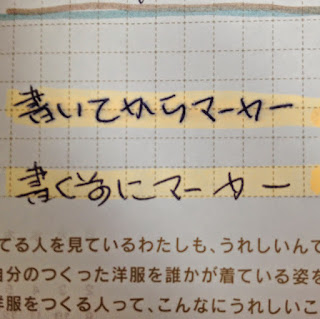 書いてからマーカー
書く前にマーカー
てる人を見ているわたしも、うれしいんで
自分のつくった洋服を誰かが着ている姿を
洋服をつくる人って、こんなにうれしいこ